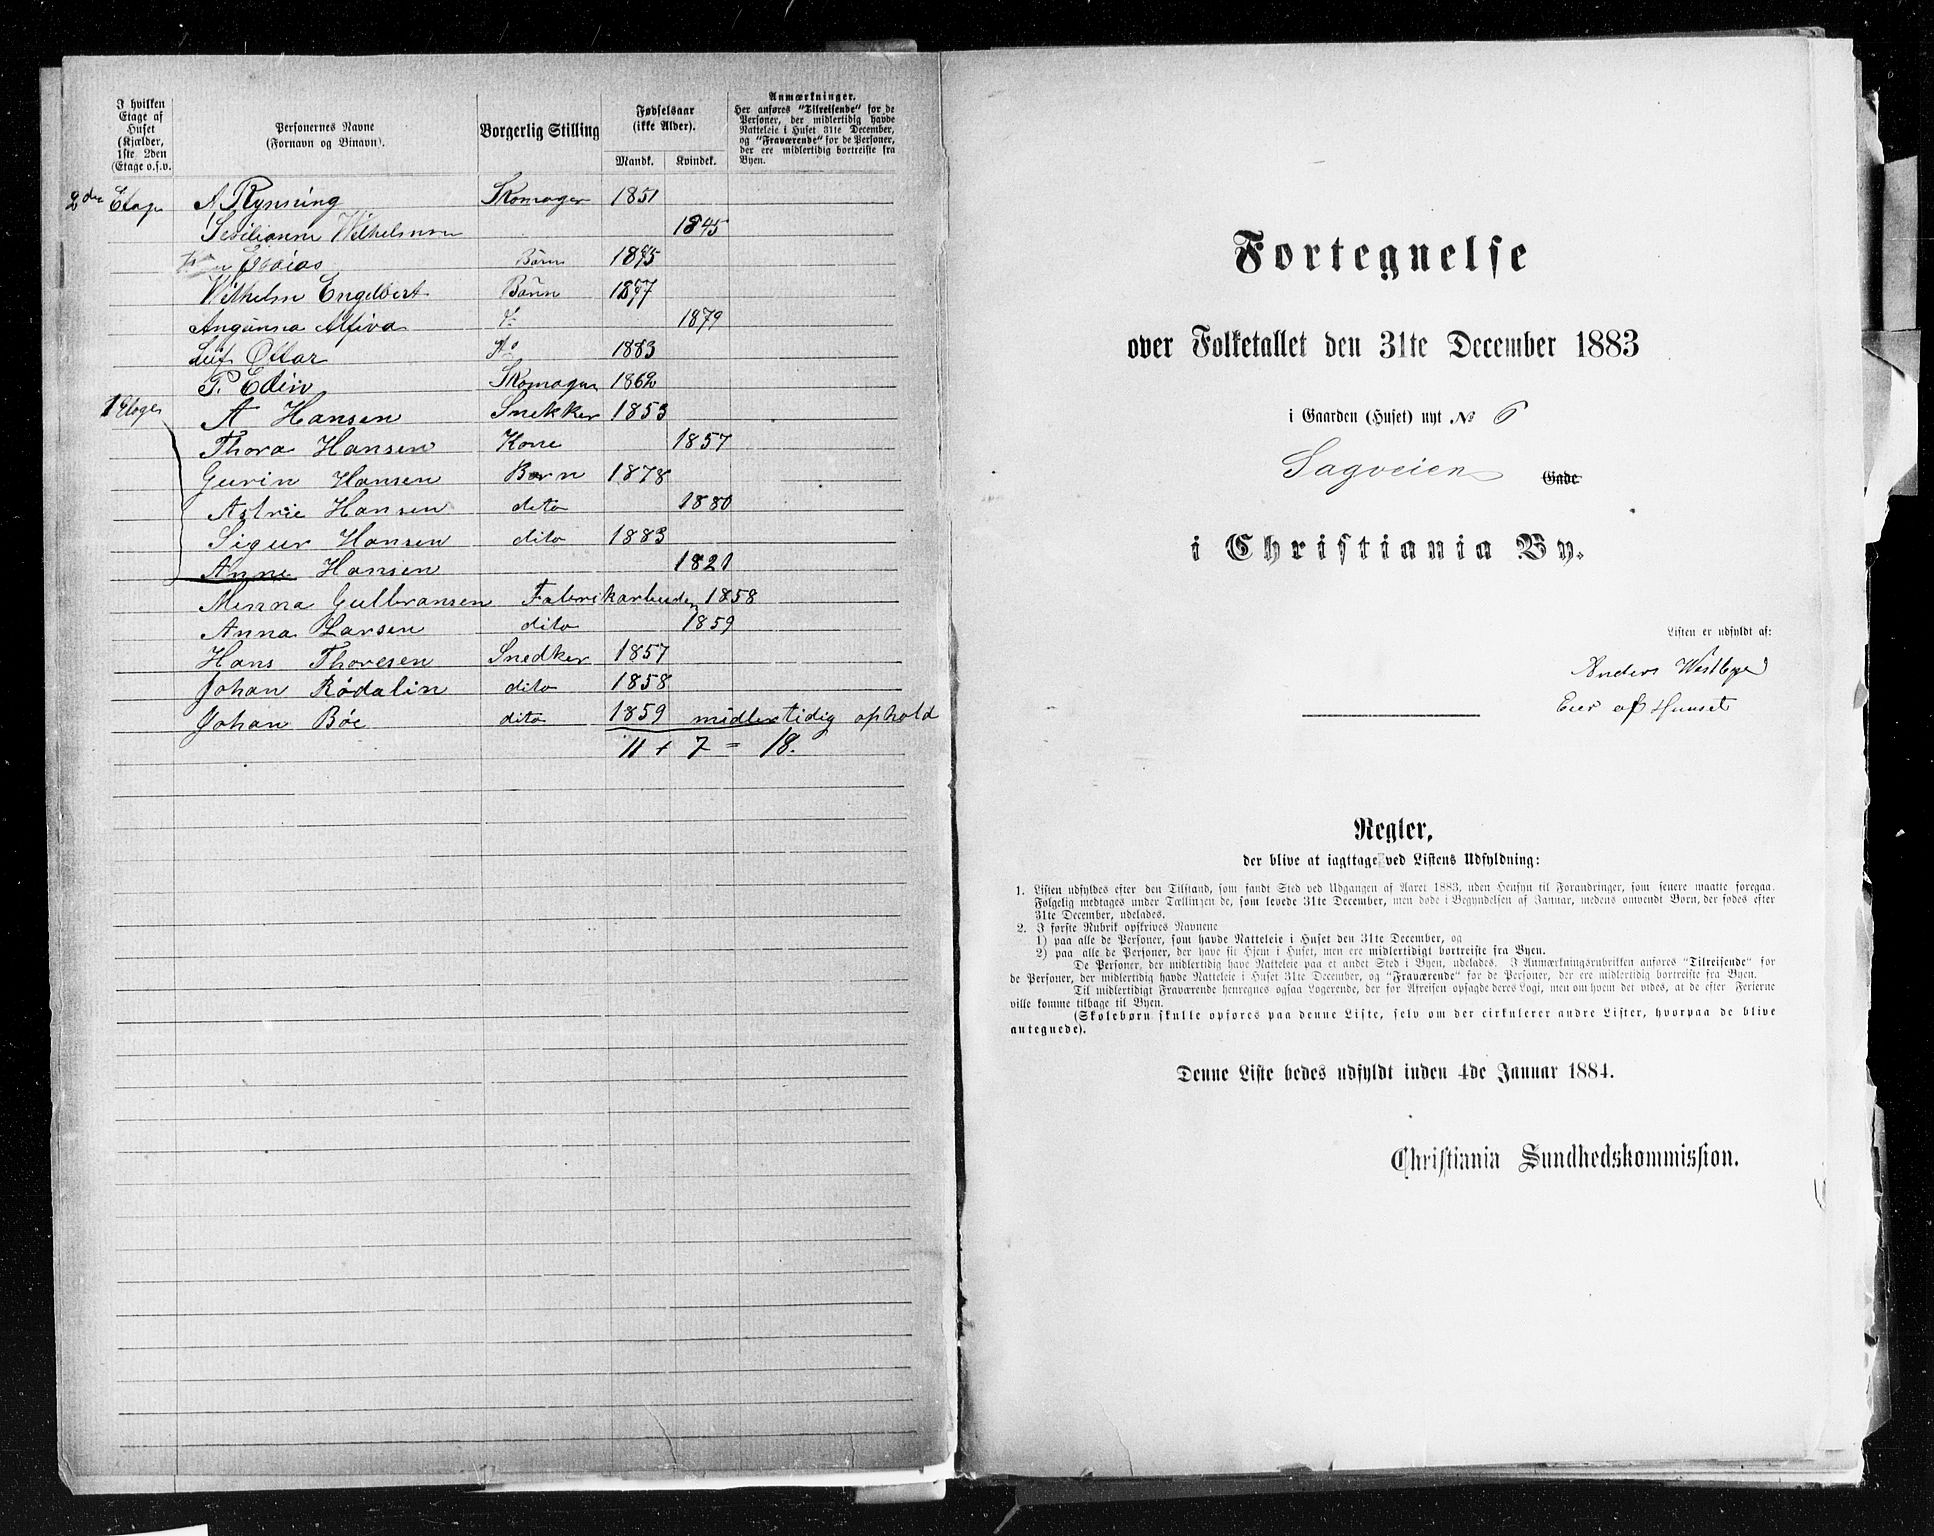 I hvilken Etage af Huset (Kjælder, 1ste 2den Etage o.s.v.
Personernes Navne (Fornavn og Binavn).
Borgerlig Stilling
Fødselsaar (ikke Alder).
Mandk. Kvindek.
Anmærkninger.
Her anføres "Tilreisende" for de Personer, der midlertidig havde Natteleie i Huset 31te December, og "Fraværende" for de Personer, der ere midlertidig bortreiste fra Byen.
2den Etage A Rynning Skomager 1851
Vilhelmine 1845
Børn 1875
Vilhelm Engelbert Børn 1877
Alfiva 1879
Leif Ottar do 1883
P. Edin Skomager 1862
1 Etage A Hansen Snekker 1853
Thora Hansen Kone 1857
Gurin Hansen Børn 1878
Astrie Hansen dito 1880
Sigur Hansen dito 1883
Anne Hansen 1821
Minna Gulbransen Fabrikarbeider 1858
Anna Larsen dito 1859
Hans Thoresen Snedker 1857
Johan Rödalin dito 1858
Johan Böe dito 1859 midlertidig ophold
11 + 7 = 18.
Fortegnelse
over Folketallet den 31te December 1883
i Gaarden (Huset) nyt № 6
Sagveien Gade
i Christiania By.
Listen er udfyldt af:
Anders Westbye
Eier af Huuset
Regler,
der blive at iagttage ved Listens Udfyldning:
1. Listen udfyldes efter den Tilstand, som fandt Sted ved Udgangen af Aaret 1883, uden Hensyn til Forandringer, som senere maatte foregaa.
Følgelig medtages under Tællingen de, som levede 31te December, men døde i Begyndelsen af Januar, medens omvendt Børn, der fødes efter
31te December, udelades.
2. I første Rubrik opskrives Navnene
1) paa alle de Personer, som havde Natteleie i Huset den 31te December, og
2) paa alle de Personer, der have sit Hjem i Huset, men ere midlertidigt bortreiste fra Byen.
De Personer, der midlertidig have Natteleie paa et andet Sted i Byen, udelades. I Anmærkningsrubrikken anføres "Tilreisende" for
de Personer, der midlertidig havde Natteleie i Huset 31te December, og "Fraværende" for de Personer, der ere midlertidig bortreiste fra Byen.
Til midlertidigt Fraværende henregnes ogsaa Logerende, der før Afreisen opsagde deres Logi, men om hvem det vides, at de efter Ferierne
ville komme tilbage til Byen.
(Skolebørn skulle opføres paa denne Liste, selv om der cirkulerer andre Lister, hvorpaa de blive
antegnede).
Denne Liste bedes udfyldt inden 4de Januar 1884.
Christiania Sundhedskommission.